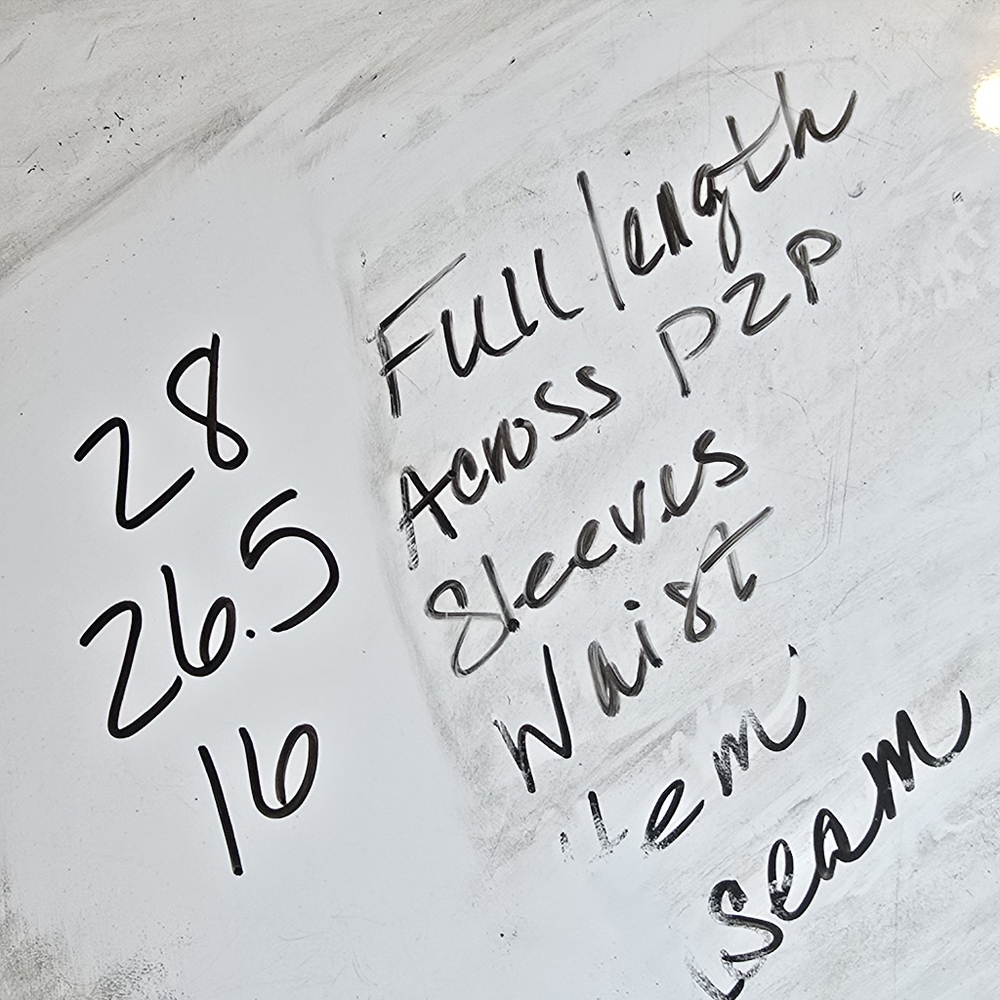 28 Full length
26.5 Across P2P
16 Sleeves
Waist
Hem
Seam